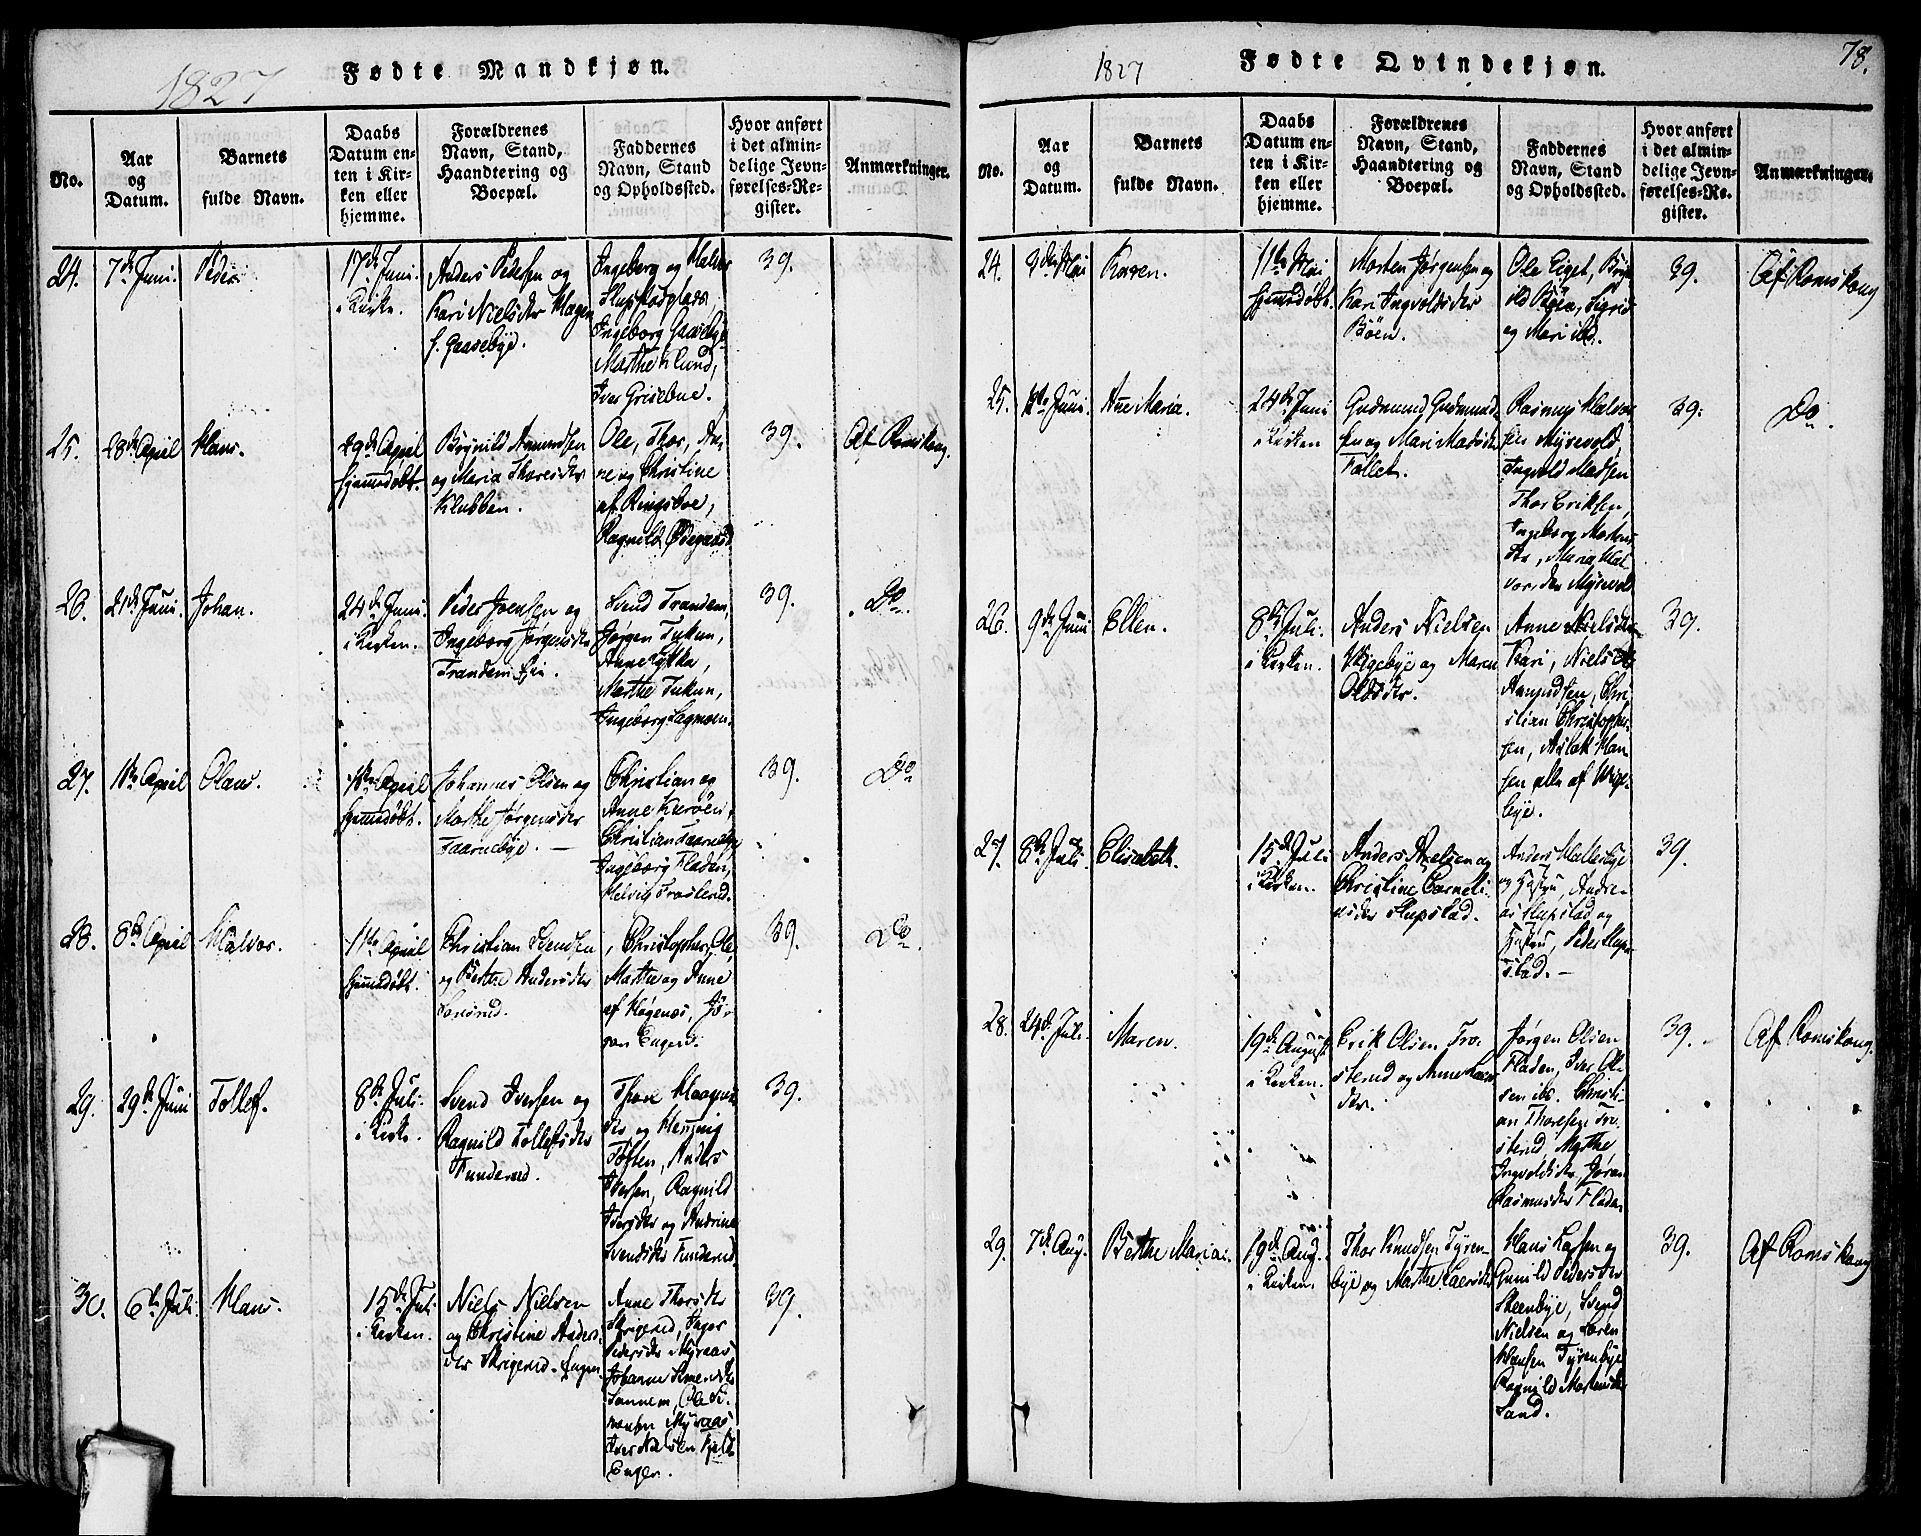 1827
Fødte Mandkjøn.
No.
Aar
og
Datum.
Barnets
fulde Navn.
Daabs
Datum en-
ten i Kir-
ken eller
hjemme.
Forældrenes
Navn, Stand,
Haandtering og
Boepæl.
Faddernes
Navn, Stand
og Opholdssted.
Hvor anført
i det almin-
delige Jevn-
førelses-Re-
gister.
Anmærkninger.
24.
7de Juni.
Peder.
17de Juni.
i Kirke.
Anders Pedersen og
Kari Nielsdtr Hagen
f. Gaasebye.
Ingeborg og Halvor
Ingeborg Gaasebye
Marthe Lund,
Iver Grisebue.
39.
25.
28de April
Hans.
29de April
hjemmedøbt.
Brynild Amundsen
og Maria Thoresdtr
Klubben.
Ole, Thor, An-
ne og Christine
af Ringsboe,
Ragnild Ødegaard
39.
Af Romskoug.
26.
21de Juni.
Johan.
24de Juni.
i Kirken.
Peder Joensen og
Ingeborg Jørgensdtr
Trandem Eje.
Svend Trandem,
Jørgen Tukun,
Anne Lykka,
Marthe Tukun,
Ingeborg Sagmoen.
39.
Do.
27.
1ste April
Olaus.
1ste April
hjemmedøbt.
Johannes Olsen og
Marthe Jørgensdtr
Taarnebye.
Christian og
Anne Kurøen,
Christian Taarnebye
Ingeborg Fladen,
Helvig Trosterud.
39.
Do
28.
8de April
Halvor.
11te April
hjemmedøbt.
Christian Svendsen
og Berthe Andersdtr
Christopher, Ole,
Marthe og Anne
af Høgenæs, Jø-
ran Engen.
39.
Do
29.
29de Juni
Tollef.
8de Juli.
i Kirke.
Svend Iversen og
Ragnild Tollefsdtr
Funderud.
og Henning
Toften, Anders
Iversen, Ragnild
Iversdtr og Andrine
Svendsdtr Funderud
39.
30.
6te Juli
Hans.
15de Juli
i Kirken.
Niels Nielsen
og Christine Anders-
dtr Skrigerud-Engen
Anne Thorsdtr
Skrigerud, Inger
Pedersdtr Myraas
Johanne Simensdtr
Sannem, Ole Si-
mensen Myraas
Iver Nielsen
Engen.
39.
1827
Fødte Qvindekjøn.
78.
No.
Aar
og
Datum.
Barnets
fulde Navn.
Daabs
Datum en-
ten i Kir-
ken eller
hjemme.
Forældrenes
Navn, Stand,
Haandtering og
Boepæl.
Faddernes
Navn, Stand
og Opholdssted.
Hvor anført
i det almin-
delige Jevn-
førelses-Re-
gister.
Anmærkninger.
24.
3die Mai
Karen.
11te Mai
hjemmedøbt.
Morten Jørgensen og
Kari Ingvoldsdtr
Böen.
Ole Eget, Bryn-
ild Böen, Sigrid
og Mari ibd.
39.
Af Romskoug
25.
Juni.
Ane Maria.
24de Juni
i Kirken
Gudmund Gudmund-
sen og Mari Madsdtr
Tollet.
Rasmus Halvor-
sen Myrevold,
Ingvold Madsen
Thor Eriksen,
Ingeborg Mortens-
dtr, Maria Hal-
vorsden Myrevold
39.
Do.
26.
9de Juni
Ellen.
8de Juli.
i Kirken.
Anders Nielsen
Vigebye og Maren
Olsdtr.
Anne Nielsdtr
Kari, Niels
Amundsen, Chri-
stian Christopher-
sen, Aslak Han-
sen alle af Vige-
bye.
39.
27.
8de Juli
Elisabeth.
15de Juli
i Kirken.
Anders Axelsen og
Christine Corneli-
usdtr Slupstad.
Anders Hallesbye
og Hustru, Andre-
as Slupstad og
Hustru, Peder Slup-
stad.
39.
28.
24de Juli.
Maren.
19de August
i Kirken.
Erik Olsen Tro-
sterud og Anne Lars-
dtr.
Jørgen Olsen
Fladen, Iver Ol-
sen ibd. Christi-
an Thoresen Tro-
sterud, Marthe
Ingvoldsdtr, Jøran
Rasmusdtr Fladen
39.
Af Romskoug.
29.
7de Aug.
Berthe Maria.
19de Aug.
i Kirken.
Thor Knudsen Tyren-
bye og Marthe Larsdtr
Hans Larsen og
Gunild Pedersdtr
Steenbye, Svend
Nielsen og Søren
Hansen Tyrenbye
Ragnild Mortensdtr
Sand.
39.
Af Romskoug